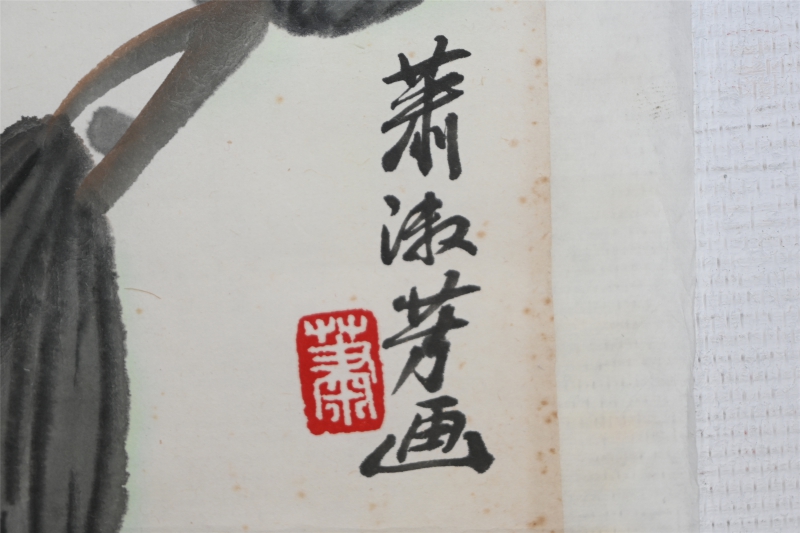 萧淑芳画
萧